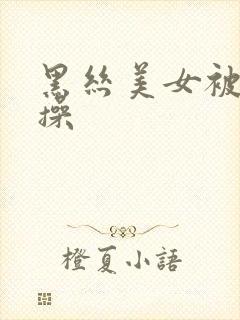 黑絲美女被
操
橙夏小語